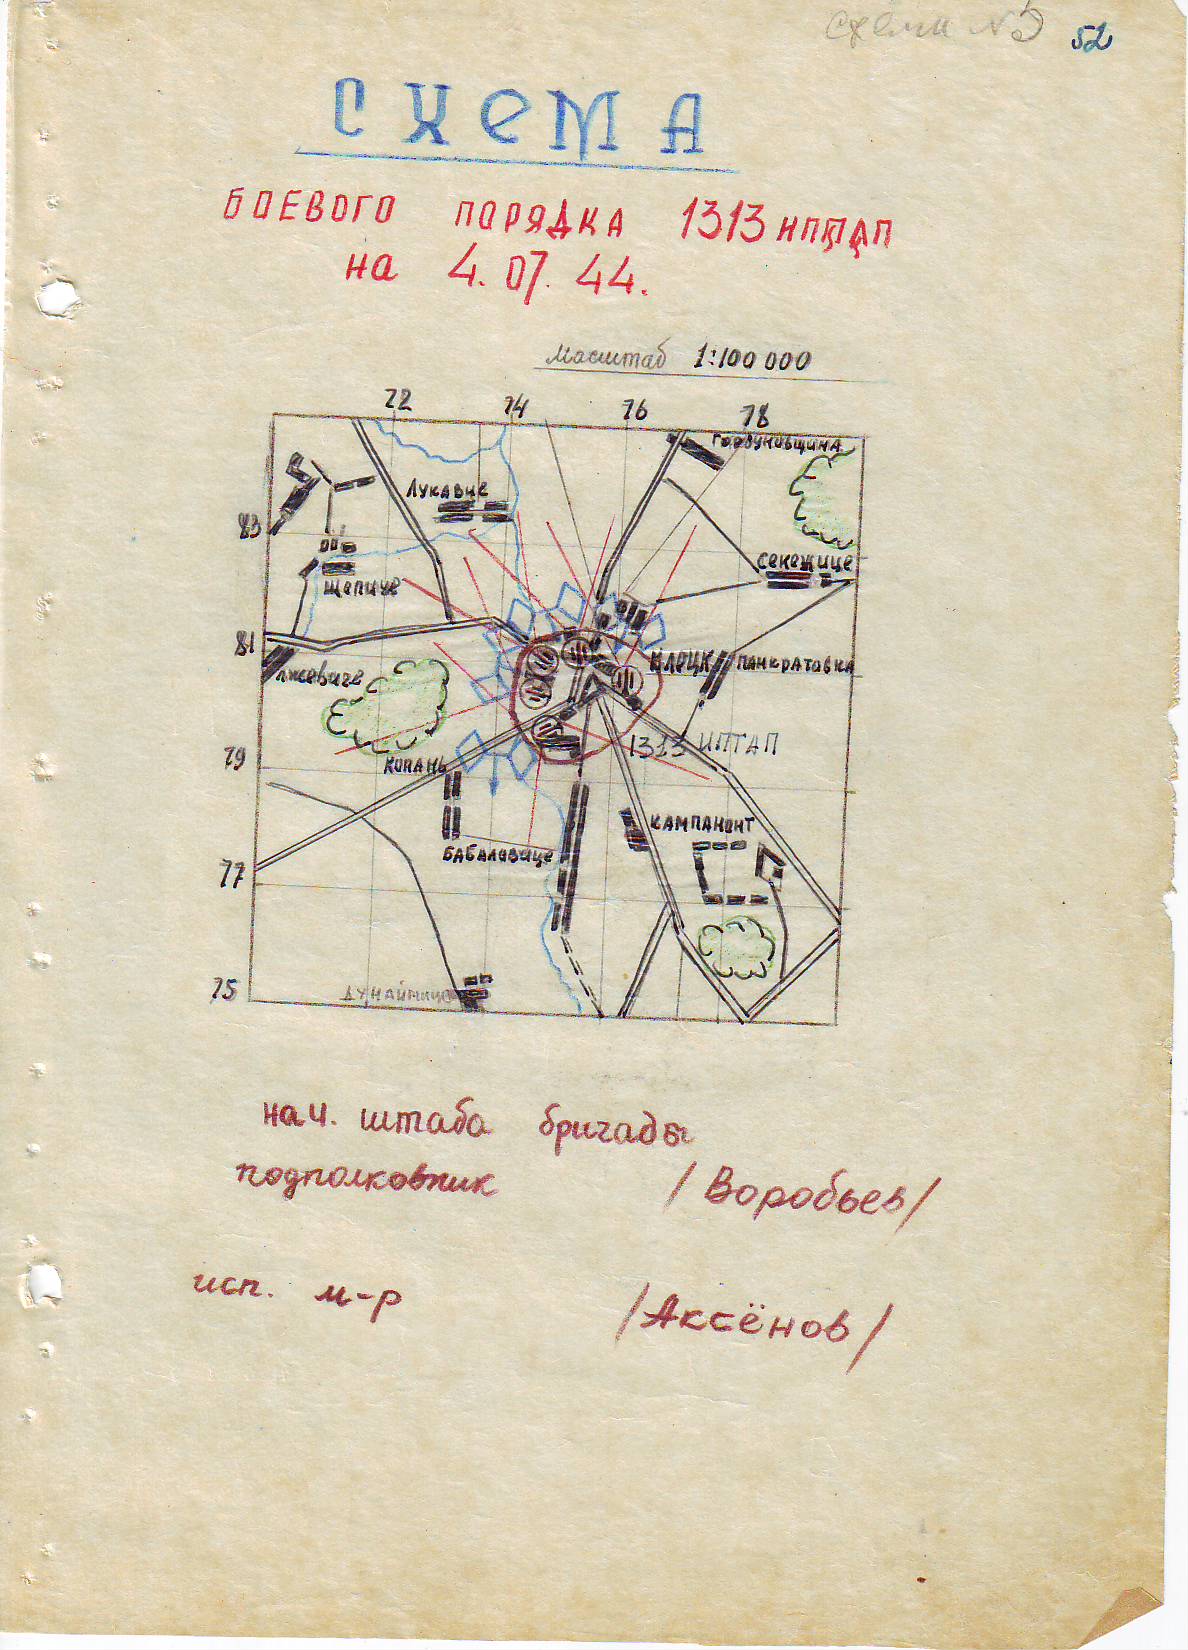 Схема №5 52
СХЕМА
БОЕВОГО ПОРЯДКА 1313 ИПТАП
на 4.07.44.
Масштаб 1:100 000
72 74 76 78
ГОЛВУНОВЩИНА
ЛУКАВЧЕ
83
СЕКЕЖИЦЕ
ЩЕПИЧЕ
81
КЛЕЦК ПАНКРАТОВКА
ЛЖЕВИЧЕ
1313 ИПТАП
79
КОПАНЬ
КАМПАНОНТ
БАБАЛОВИЦЕ
77
75
ДУНАЙЧИЦЕ
нач. штаба бригады
подполковник /Воробьев/
исп. м-р /Аксёнов/